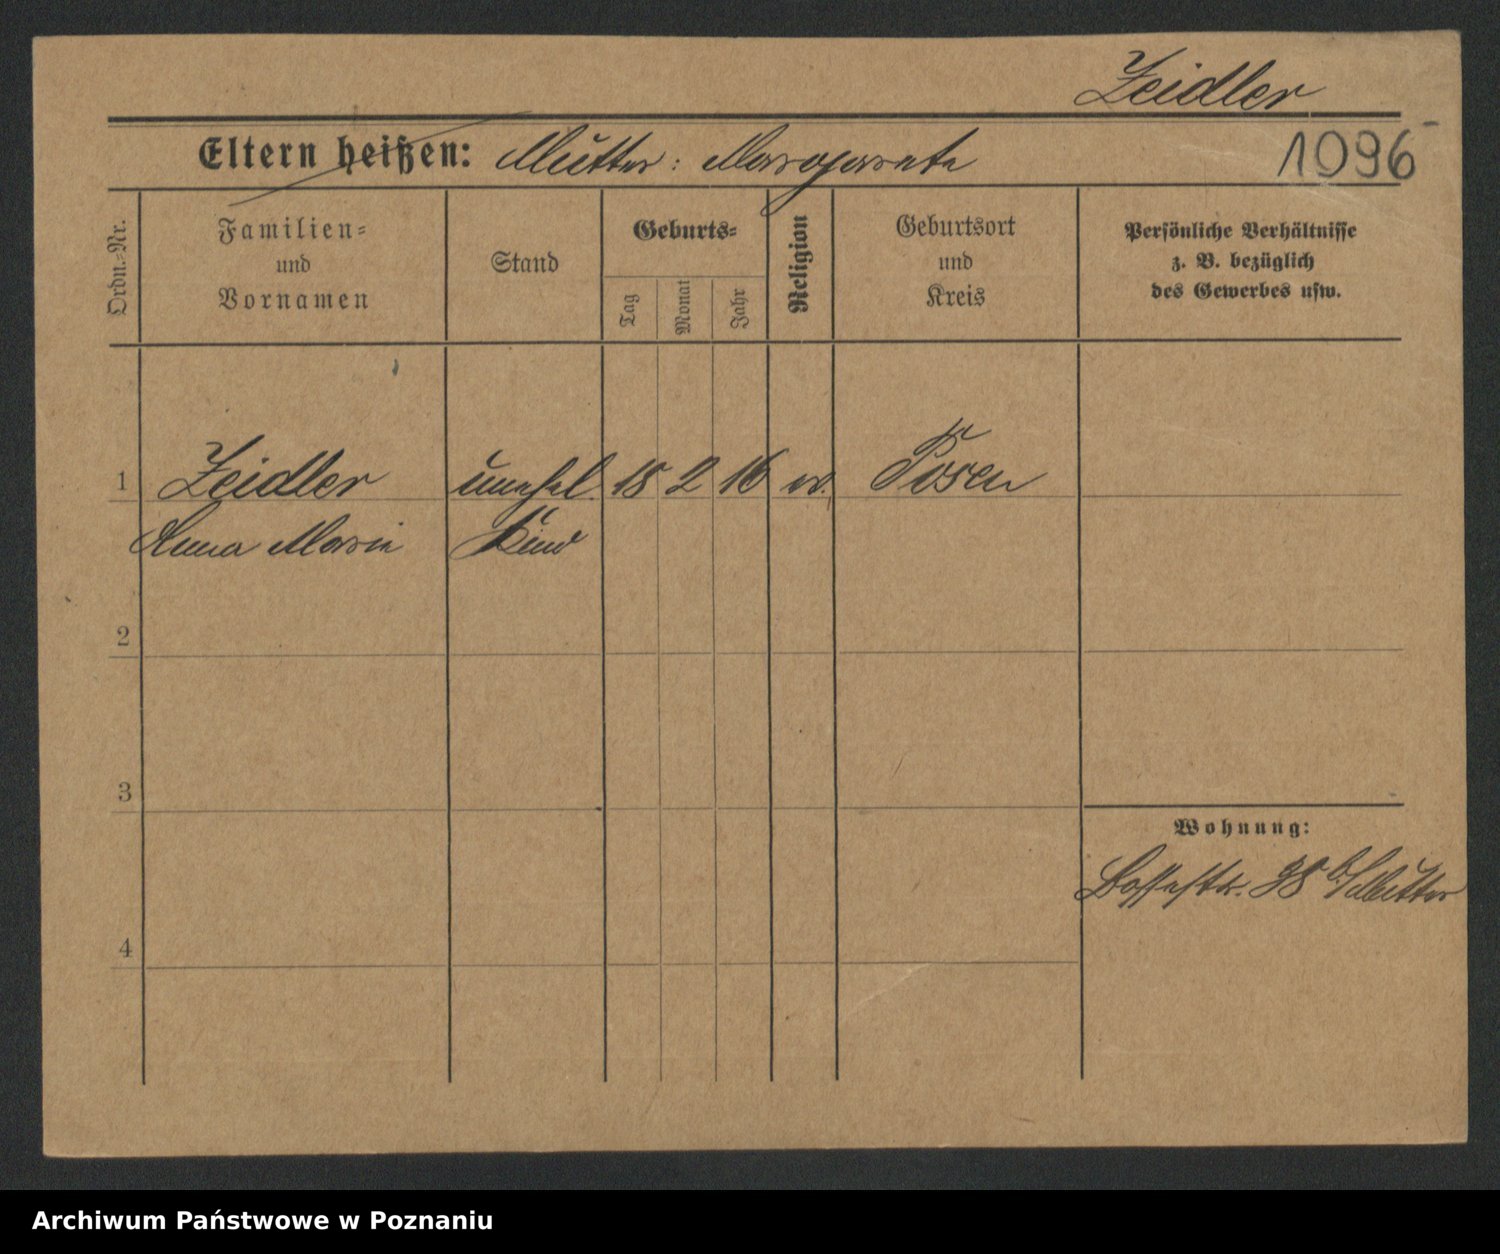 Zeidler
Eltern heißen: Mutter: Margarete
1096
Ordn.-Nr.
Familien-
und
Vornamen
Stand
Geburts-
Tag
Monat
Jahr
Religion
Geburtsort
und
Kreis
Persönliche Verhältnisse
z. B. bezüglich
des Gewerbes usw.
1 Zeidler unehel. 18 2 16 ev. Posen
Anna Marie Kind
2
3
4
Wohnung:
38 b/Mutter
Archiwum Państwowe w Poznaniu